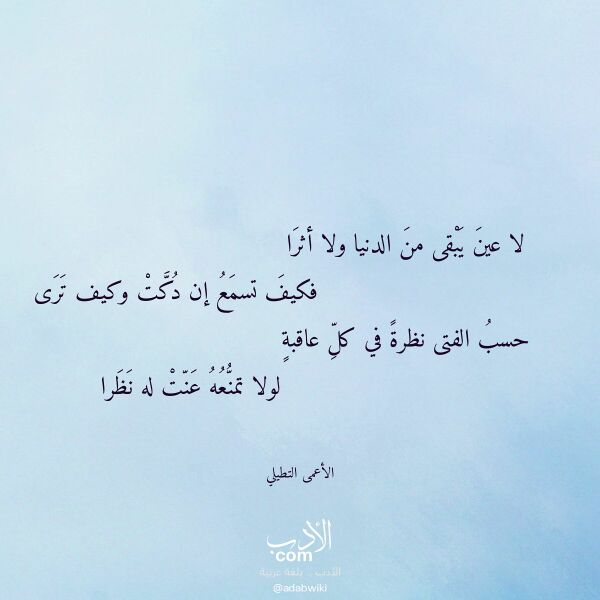 لا عينَ يَبْقى منَ الدنيا ولا أثرَا
فكيفَ تسمَعُ إن دُكَّتْ وكيف تَرَى
حسبُ الفتى نظرةً في كلِّ عاقبةٍ
لولا تمنُّعُهُ عَنّتْ له نَظَرا
الأعمى التطيلي
الأدب
com
الأدب .. بلغة عربية
@adabwiki